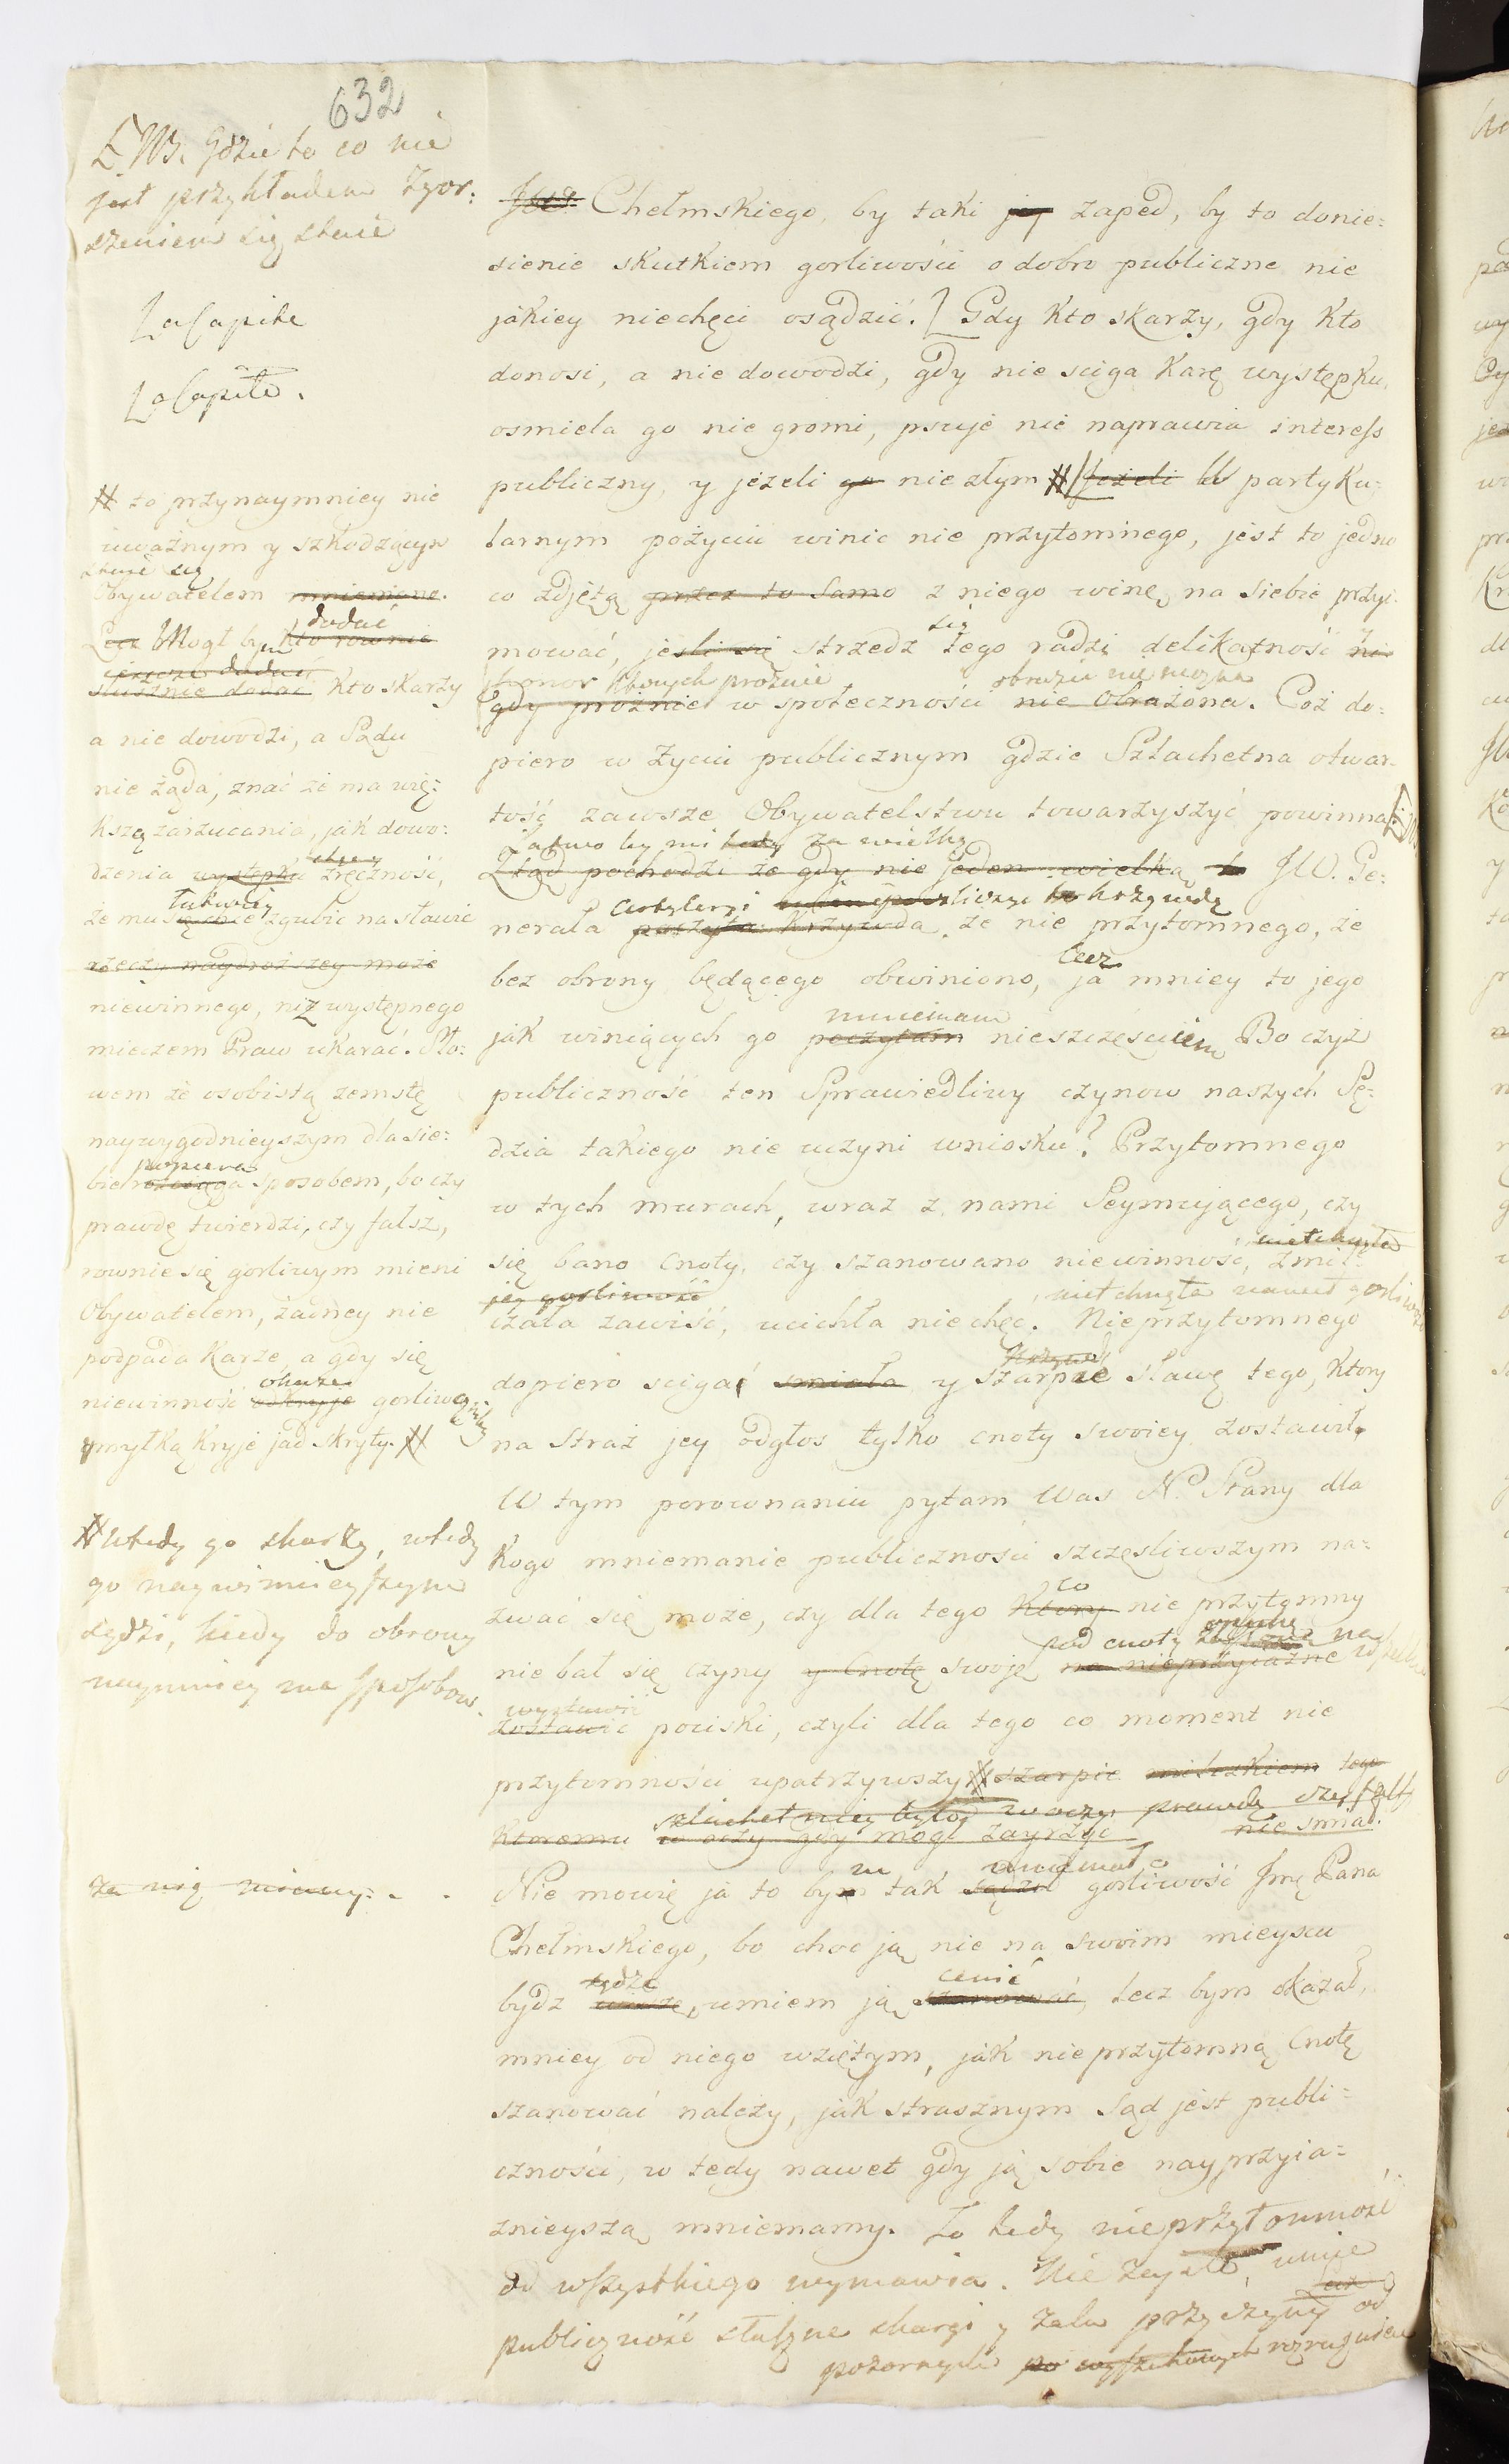 632
NB. Gdzie to co nie
jest przykładem zgor:
szeniem się stanie
a Capite
a Capite.
# to przynaymniey nie
uważnym y szkodzącym
stanie się
Obywatelem mniemane.
dodać
Lecz Mogł bym kto rownie
jeszcze dodać
słusznie dodać kto skarży
a nie dowodzi, a Sądu
nie żąda, znać że ma wię:
kszą zarzucania, jak dowo:
dzenia występku zręczność,
że mu łatwiey zgubić na sławie
rzeczy naydroższey może
niewinnego, niż występnego
mieczem Praw ukarać. Sło:
wem że osobistą zemstę
naywygodnieyszym dla sie:
popiera
bie sposobem, bo czy
prawdę twierdzi, czy fałsz,
rownie się gorliwym mieni
Obywatelem, żadney nie
podpada Karze, a gdy się
okaże
niewinność odkryje gorliwą
omyłką kryje jad skryty. #
# Wtedy go skarży, wtedy
go naywinnieyszym
sądzi, kiedy do obrony
naymniey ma sposobow.
za nią
JWo. Chełmskiego, by taki jey zapęd, by to donie:
sienie skutkiem gorliwości o dobro publiczne nie
jakiey niechęci osądzić. Gdy kto skarży, gdy kto
donosi, a nie dowodzi, gdy nie sciga karę występku,
osmiela go nie gromi, psuje nie naprawia interess
publiczny, y jeżeli go nie złym # Jeżeli W partyku:
larnym pożyciu winić nie przytomnego, jest to jedno
co zdjętą przez to samo z niego winę, na siebie przyi:
się
mować, jesli się strzedz tego radzi delikatność
honor ktorych proznie obrazić nie można
gdy proznie w społeczności nie obrażona. Coż do:
piero w życiu publicznym gdzie Szlachetna otwar:
tość zawsze Obywatelstwu towarzyszyć powinna.
Łatwo by mi za wielką
Ztąd pochodzi że gdy nie jeden wielką to JW. Ge:
krzywdę
nerała poczyta krzywda, że nie przytomnego, że
Lecz
bez obrony będącego obwiniono, ja mniey to jego
mniemam
jak winiących go poczytam nieszczęściem Bo czyż
publiczność ten Sprawiedliwy czynow naszych Sę:
dzia takiego nie uczyni wniosku? Przytomnego
w tych murach, wraz z nami Seymującego, czy
nietchnęła
się bano cnoty, czy szanowano niewinność, zmil:
jey gorliwość nietchnęła nawet gorliwość
czała zawiść, ucichła niechęć. Nieprzytomnego
dopiero scigać smiała y szarpie sławę tego, ktory
na straż jey odgłos tylko cnoty swoiey zostawił.
W tym porownaniu pytam Was N. Stany dla
kogo mniemanie publiczności szczęsliwszym na:
co
zwać się może, czy dla tego ktory nie przytomny
pod cnoty opieką na
nie bał się czyny y Cnotę swoję na nieprzyiazne
wystawić
zostawić pociski, czyli dla tego co moment nie
przytomności upatrzywszy # szarpie milczkiem tego
szlachetniey było w oczy prawdę
ktoremu w oczy gdy mogł zayrzyć nie smiał.
mniemał o
Nie mowię ja to bym tak sądził gorliwość Jmę Pana
Chełmskiego, bo choc ją nie na swoim mieyscu
sądzę cenić
bydz umiem ją szanować, lecz bym okazał,
mniey od niego wziętym, jak nieprzytomną Cnotę
szanować należy, jak strasznym Sąd jest publi:
czności, w tedy nawet gdy ją sobie nayprzyia:
znieyszą mniemamy. To tedy nieprzytomność
do wszystkiego wymawia. Nie zayzła, umie
publiczność słuszne skargi y żalu przyczyny od
pozornych po rozrużnieni